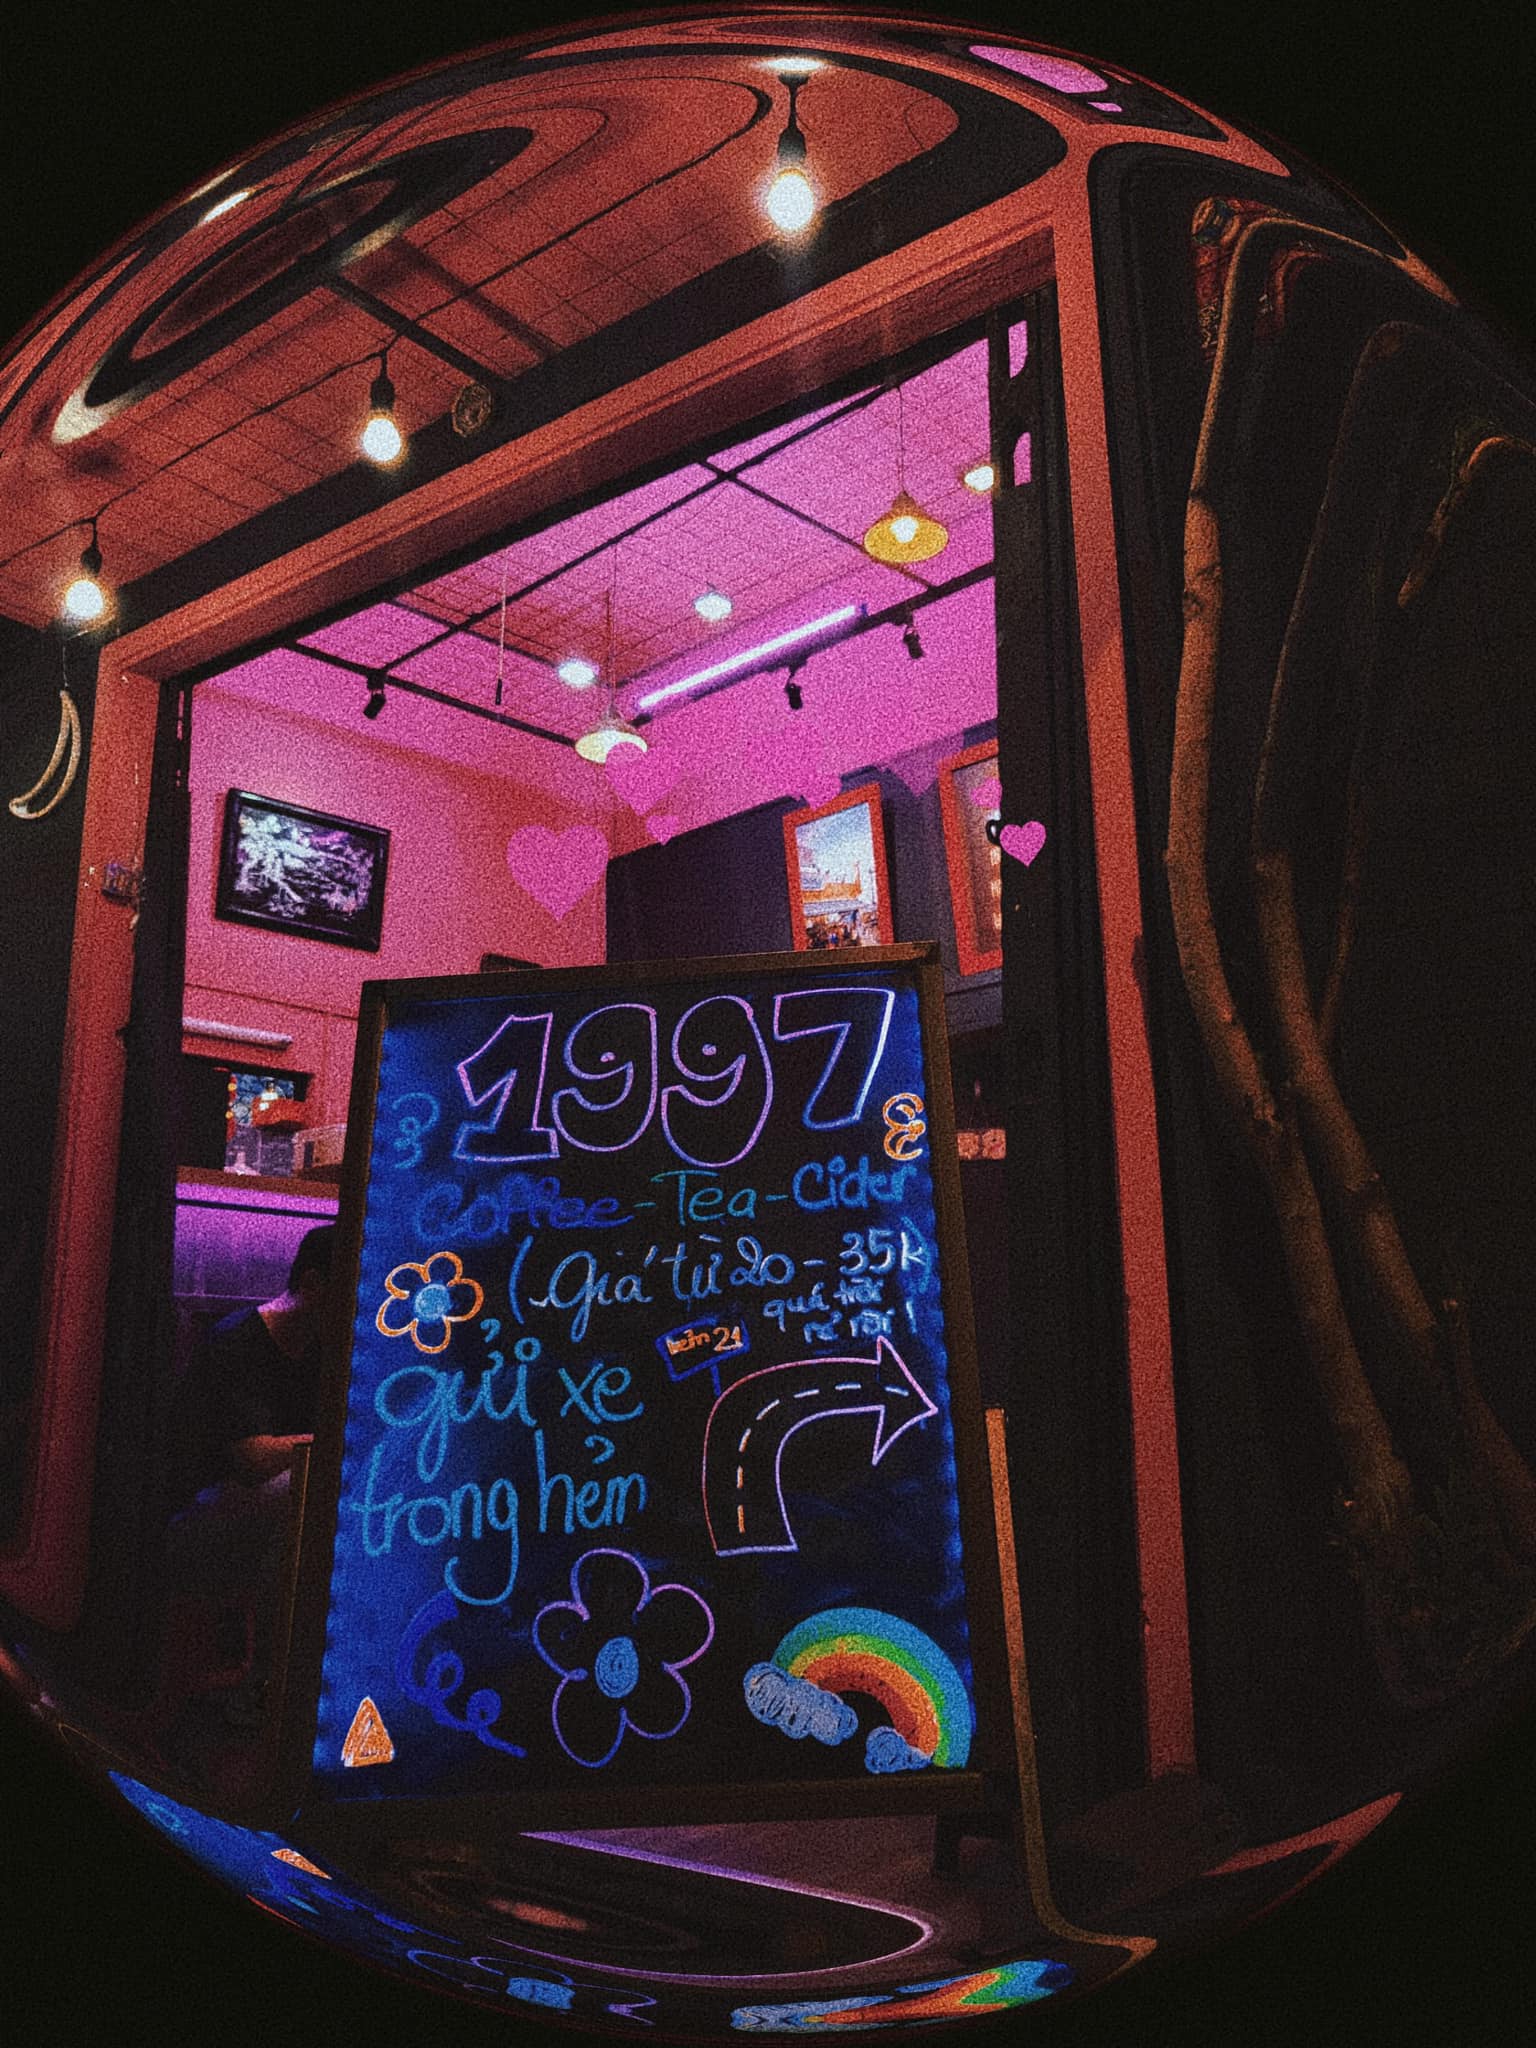 1997
Coffee-Tea-Cider
(Giá từ 20-35k)
quá trời
rẻ rồi!
hẻm 21
gửi xe
trong hẻm